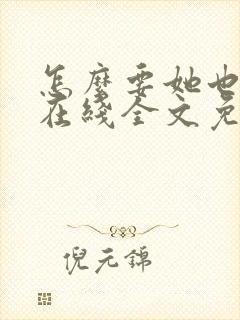 怎麽要她也
在綫全文免
倪元錦